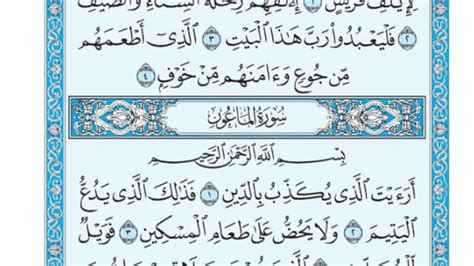 لِإِيلَٰفِ قُرَيْشٍ ١ إِۦلَٰفِهِمْ رِحْلَةَ ٱلشِّتَآءِ وَٱلصَّيْفِ
٢ فَلْيَعْبُدُوا۟ رَبَّ هَٰذَا ٱلْبَيْتِ ٣ ٱلَّذِىٓ أَطْعَمَهُم
مِّن جُوعٍ وَءَامَنَهُم مِّنْ خَوْفٍۭ ٤
سُورَةُ المَاعُونِ
بِسْمِ ٱللَّهِ ٱلرَّحْمَٰنِ ٱلرَّحِيمِ
أَرَءَيْتَ ٱلَّذِى يُكَذِّبُ بِٱلدِّينِ ١ فَذَٰلِكَ ٱلَّذِى يَدُعُّ
ٱلْيَتِيمَ ٢ وَلَا يَحُضُّ عَلَىٰ طَعَامِ ٱلْمِسْكِينِ ٣ فَوَيْلٌ